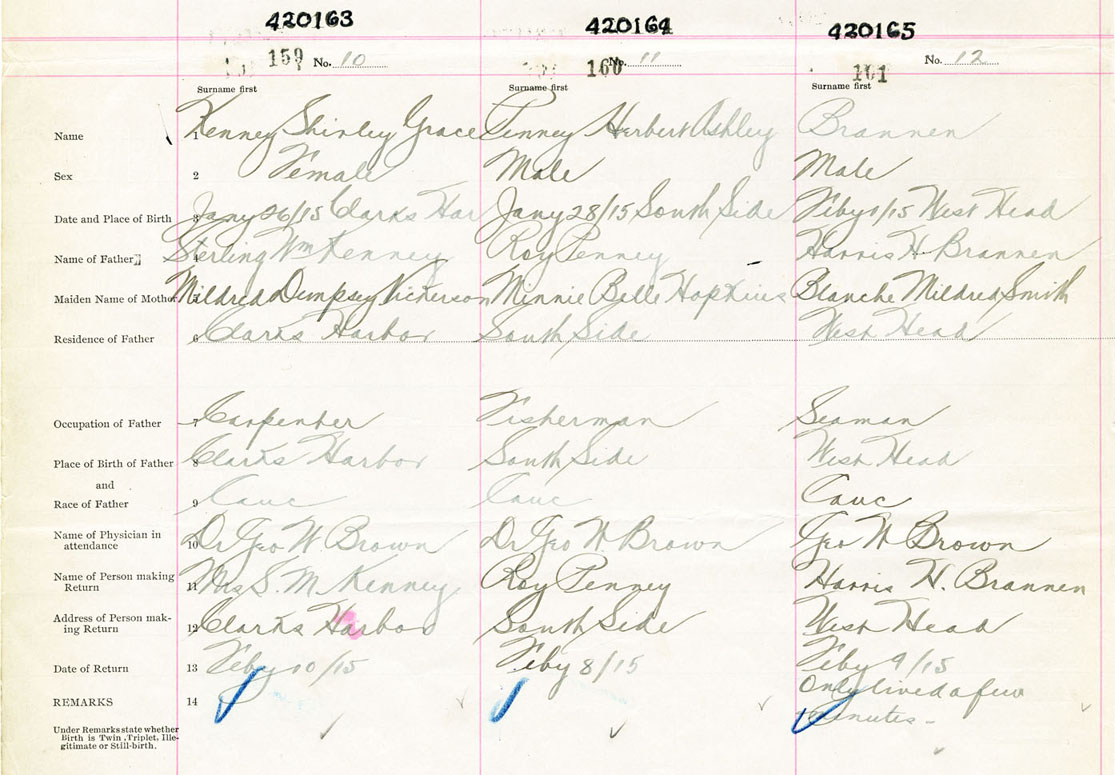 420163 420164 420165
159 No. 10 160 No. 11 161 No. 12
Surname first Surname first Surname first
Name 1 Kenney Shirley Grace Penney Herbert Ashley Brannen
Sex 2 Female Male Male
Date and Place of Birth 3 Jany 26/15 Clarks Har Jany 28/15 South Side Feby 1/15 West Head
Name of Father 4 Sterling Wm Kenney Roy Penney Harris H. Brannen
Maiden Name of Mother 5 Mildred Dempsey Nickerson Minnie Belle Hopkins Blanche Mildred Smith
Residence of Father 6 Clarks Harbor South Side West Head
Occupation of Father 7 Carpenter Fisherman Seaman
Place of Birth of Father 8 Clarks Harbor South Side West Head
and
Race of Father 9 Cauc Cauc Cauc
Name of Physician in
attendance 10 Dr Geo W. Brown Dr Geo W. Brown Geo W Brown
Name of Person making
Return 11 Mrs S. M. Kenney Roy Penney Harris H. Brannen
Address of Person mak-
ing Return 12 Clarks Harbor South Side West Head
Date of Return 13 Feby 10/15 Feby 8/15 Feby 9/15
REMARKS 14 Only lived a few
minutes -
Under Remarks state whether
Birth is Twin, Triplet, Ille-
gitimate or Still-birth.